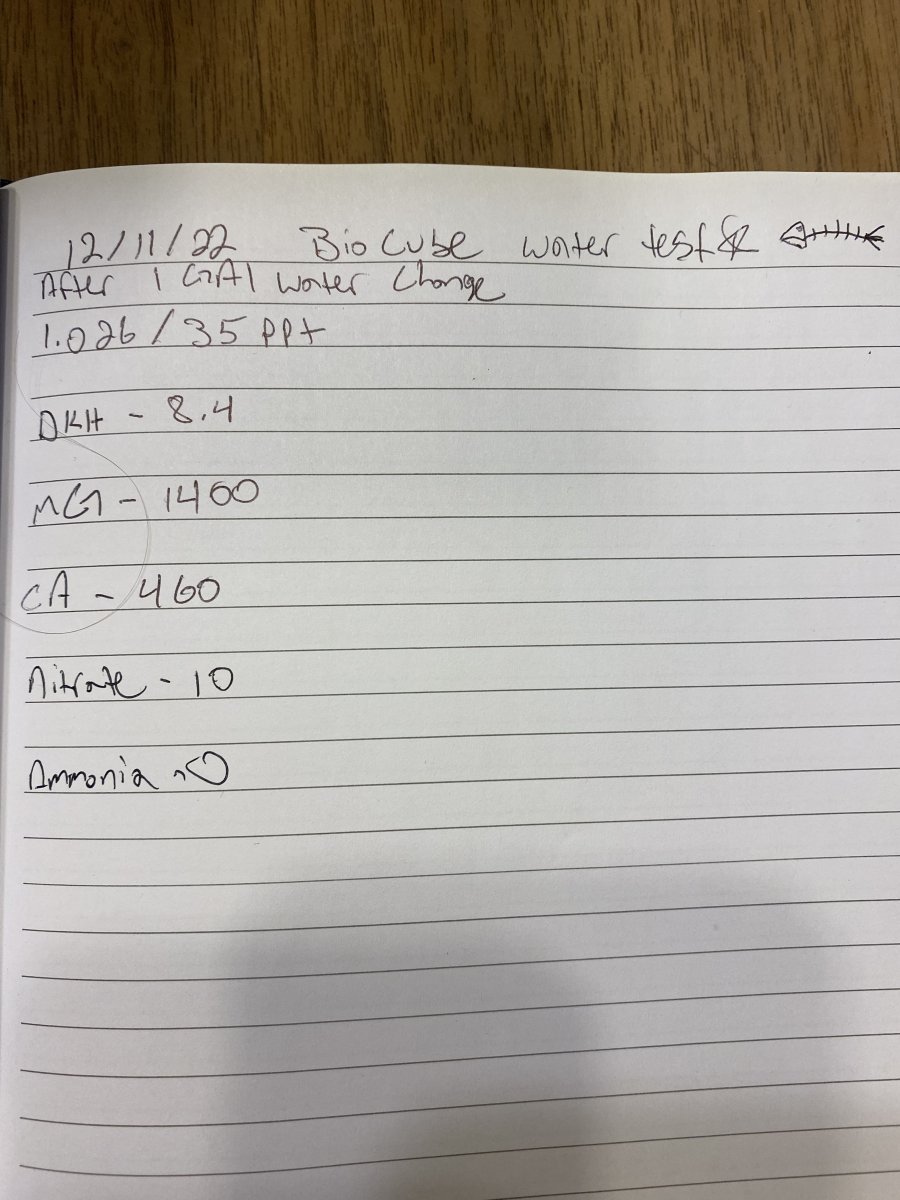 12/11/22 Bio Cube water test
After 1 GAl water change
1.026 / 35 PPt
DKH - 8.4
MG - 1400
CA - 460
Nitrate - 10
Ammonia - 0